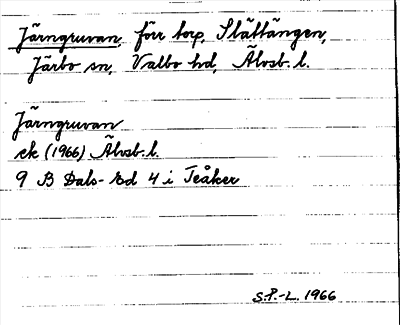 Järngruvan, förr torp, Slättängen,
Järbo sn, Valbo hd, Älvsb. l.
Järngruvan
ek (1966) Älvsb. l.
9 B Dals-Ed 4 i Teåker
S.P.-L. 1966